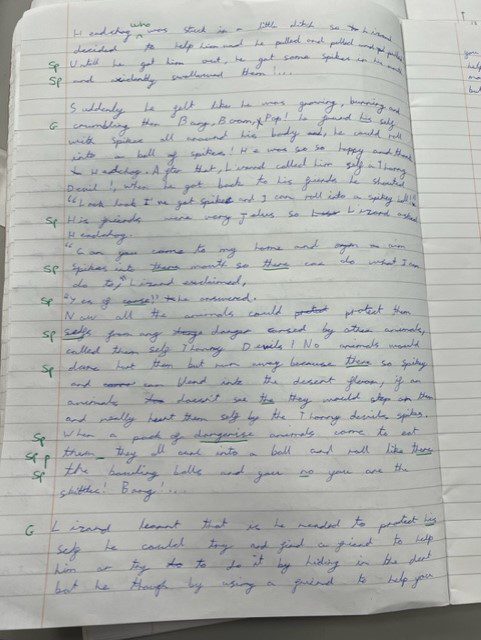 who
Headchog was stuck in a little ditch so Lizard
decided to help him and he pulled and pulled and pulled
Sp Untill he got him out, he got some spikes in his mouth
Sp and axidently swallowed them!...
Suddenly he felt like he was growing, burning and
crumbling then Bang, Boom, Pop! he
G found his self
with spikes all around his body, he could roll
into a ball of spikes! He was so so happy and
Headchog. After that, Lizard called him self a Thorny
Devil!, when he got back to his friends he shouted
"Look look I've got spikes and I can roll into a spikey ball!"
Sp His friends were very jelus so Lizard asked
Headchog.
"Can you come to my home and
Sp spikes into there mouth so there can do what I can
do to," Lizard exclaimed,
Sp "Yes of course" he answered.
Now all the animals could protect them
Sp selfs from any danger caused by other animals,
called them self Thorny Devils! No animals would
Sp hurt them but run away because there so spikey
and can blend into the desert, if an
animals doesn't see the they would step on them
and really hurt them self by the Thorny devils spikes.
Sp When a pack of dangerise animals came to eat
Sp p them they all curl into a ball and roll like there
Sp the bowling balls and you are the
skittles! Bang!....
G Lizard learnt that is he needed to protect his
self he could try and find a friend to help
him or try to do it by hiding in the
but he though by using a friend to help you